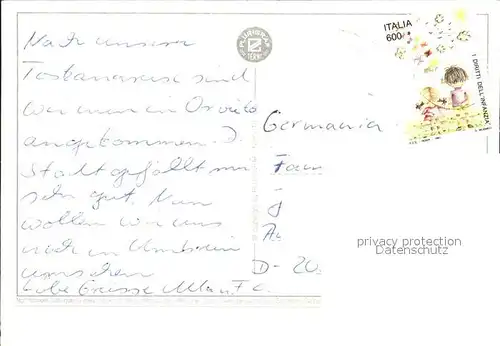 Nach unserer
Toskanareise sind
wir nun in Orvieto
angekommen. D.
Stadt gefällt mir
sehr gut. Nun
wollen wir uns
noch in Umbrien
umsehen
Liebe Grüsse
Germania
Fam
D-20
ITALIA
600
I DIRITTI DELL'INFANZIA
privacy protection
Datenschutz